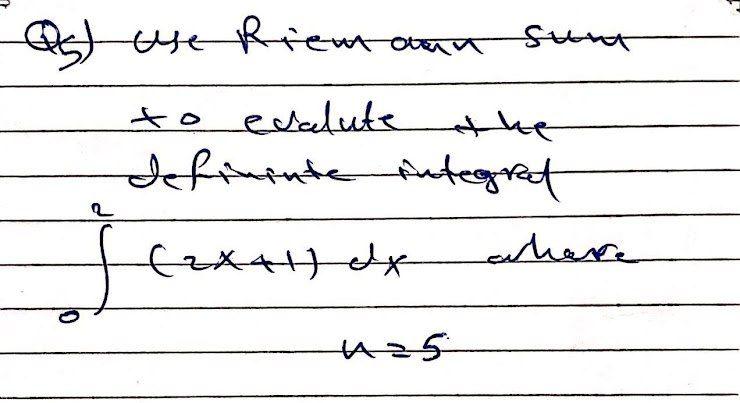 Q5) use Riemann sum
to evalute the
defininte integral
∫₀² (2x+1) dx where
n=5